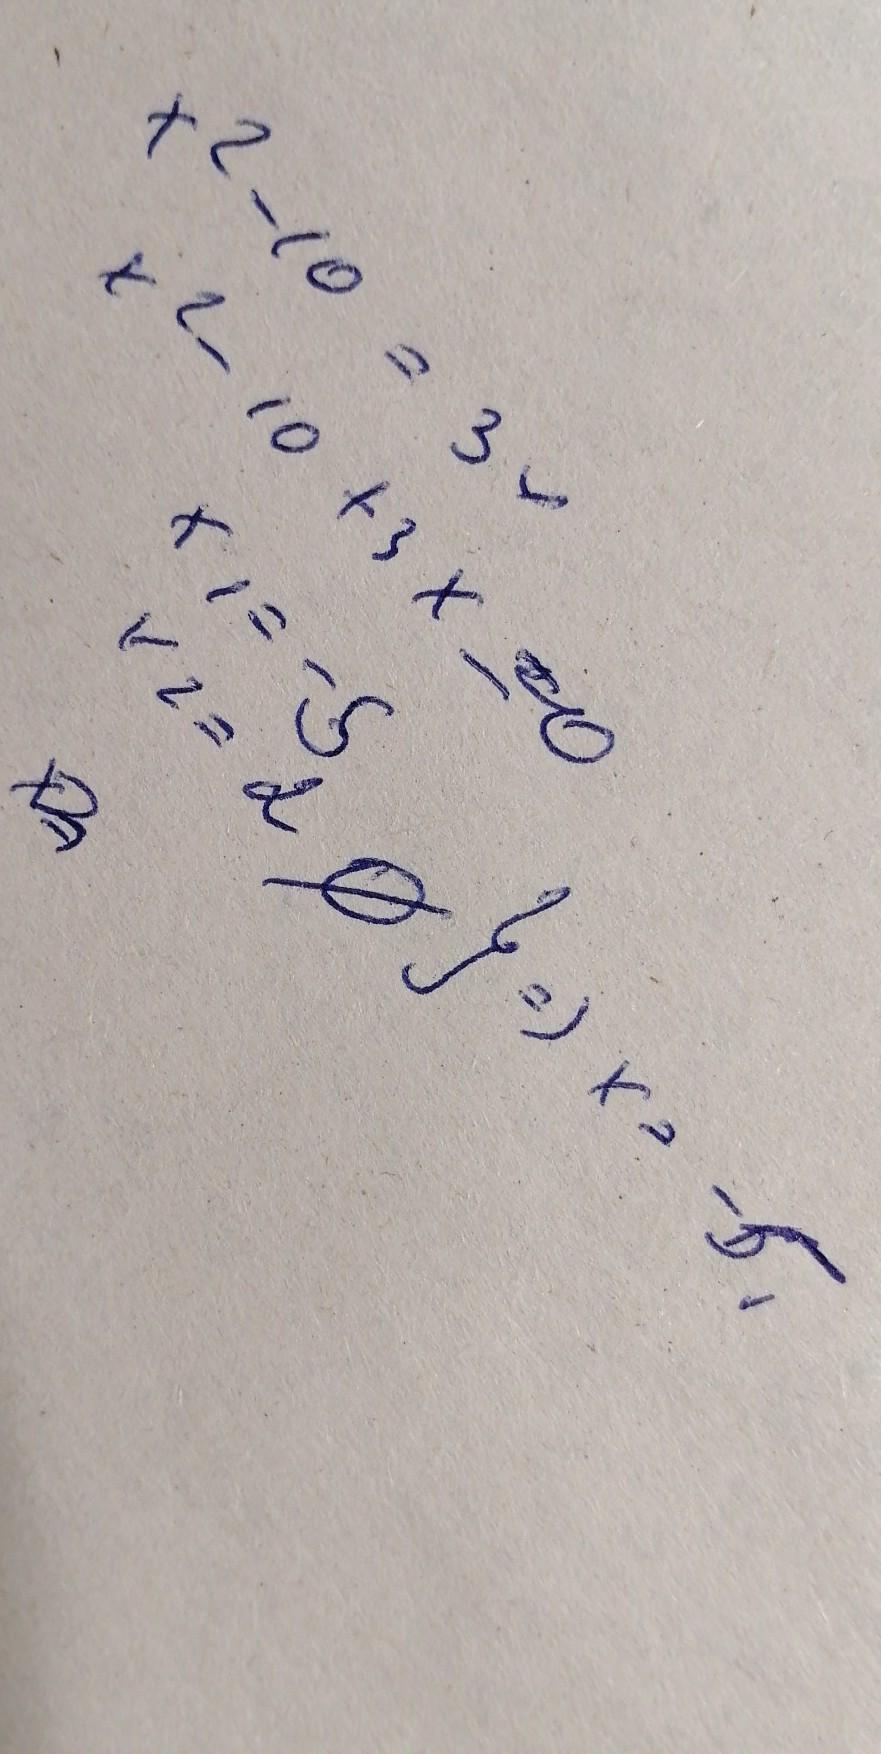 x2 - 10 = 3
x2 - 10 + 3x = 0
x1 = -5
x2 = 2
∅ } => x = -5.